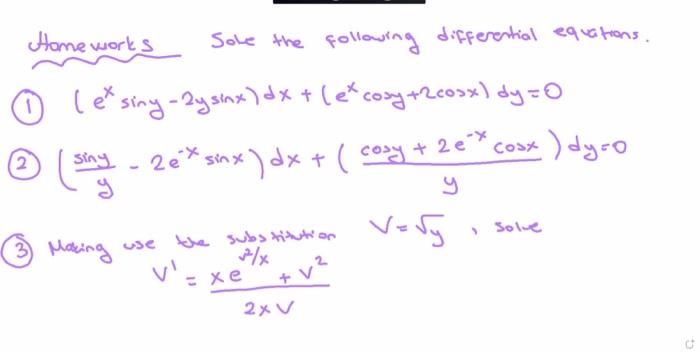 Homeworks Solve the following differential equations.
① (e^x siny - 2y sinx) dx + (e^x cosy + 2cosx) dy = 0
② (siny/y - 2e^-x sinx) dx + ((cosy + 2e^-x cosx)/y) dy = 0
③ Making use the substitution V = √y, solve
V' = (x e^(v²/x) + V²)/(2xV)